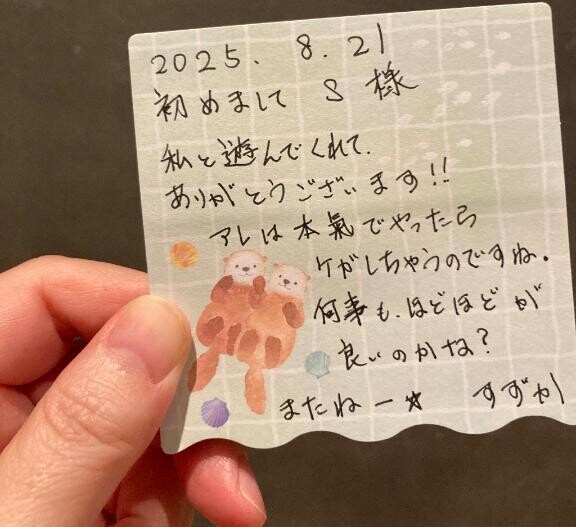 2025. 8.21
初めまして S 様
私と遊んでくれて、
ありがとうございます!!
アレは本氣でやったら
ケガしちゃうのですね。
何事も、ほどほどが
良いのかな?
またねー☆ すずか